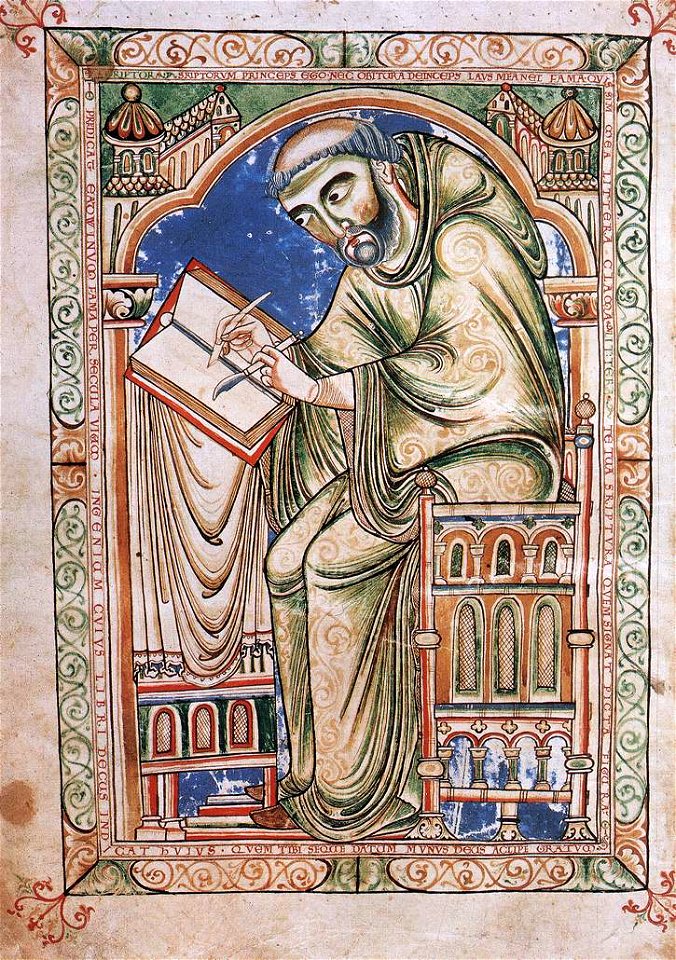 SRIPTORVM PRINCEPS EGO·NEC OBITURA DEINCEPS LAVS MEA NEC FAMA·QVI
SIM MEA LITTERA CLAMA·LITTERA· TE TUA SRIPTURA QVEM SIGNAT PICTA FIGURA·
PREDICAT EADWINVM FAMA PER SECULA VIVVM·INGENIVM CVIVS LIBRI DECUS INDI
CAT HVIVS·QVEM TIBI SEQUE DATUM MVNVS DEUS ACCIPE GRATVM